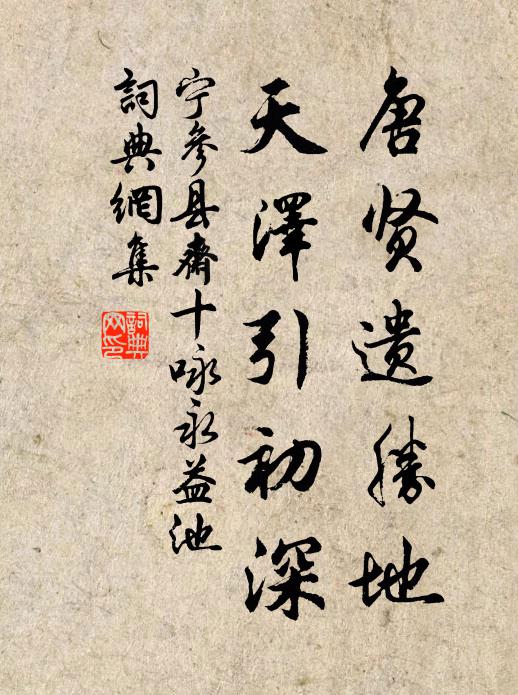 唐贤遗勝地
天澤引初深
宁参县齋十咏永益池
詞典網集
詞典網印